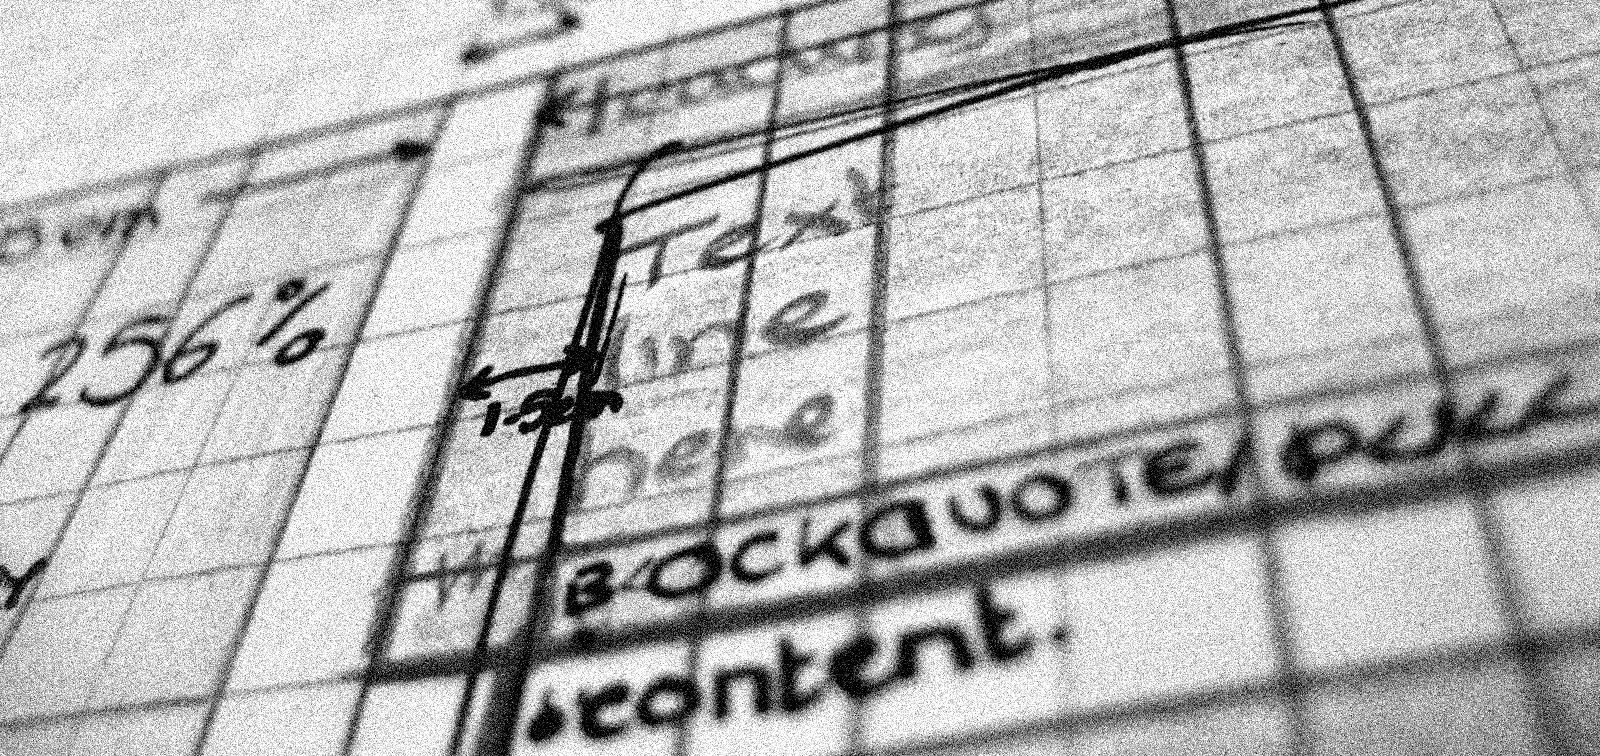 Heading
256%
Text
line
here
1.5em
BLOCKQUOTE/PULL
content.